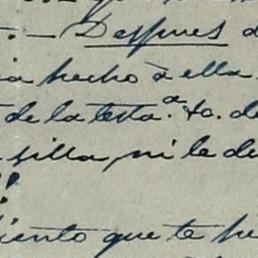 . — Despues d
ia hecho à ella
de la testa.ª to. de
silla, ni le de
iento que te hi